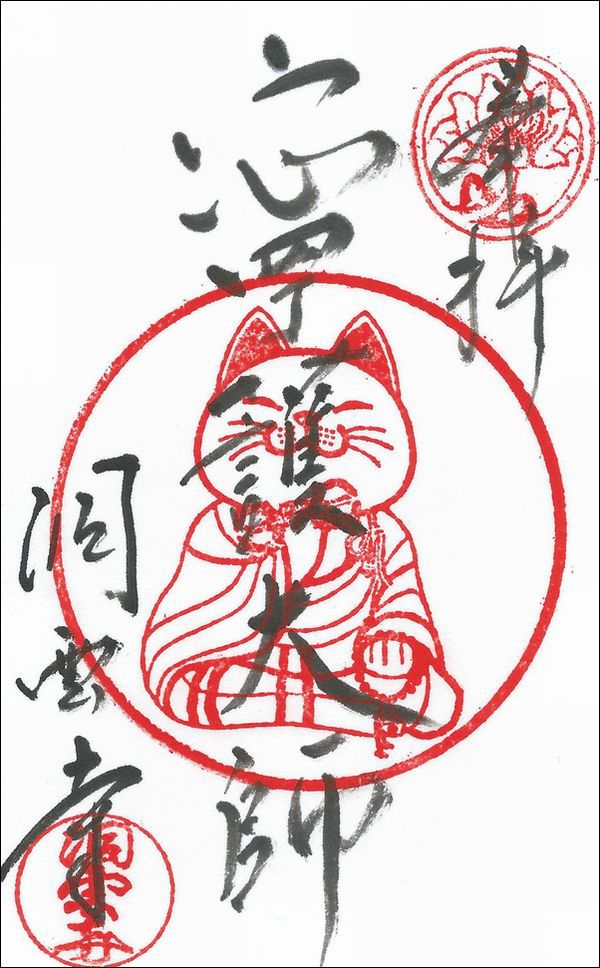 奉拝
寧護大師
洞雲寺